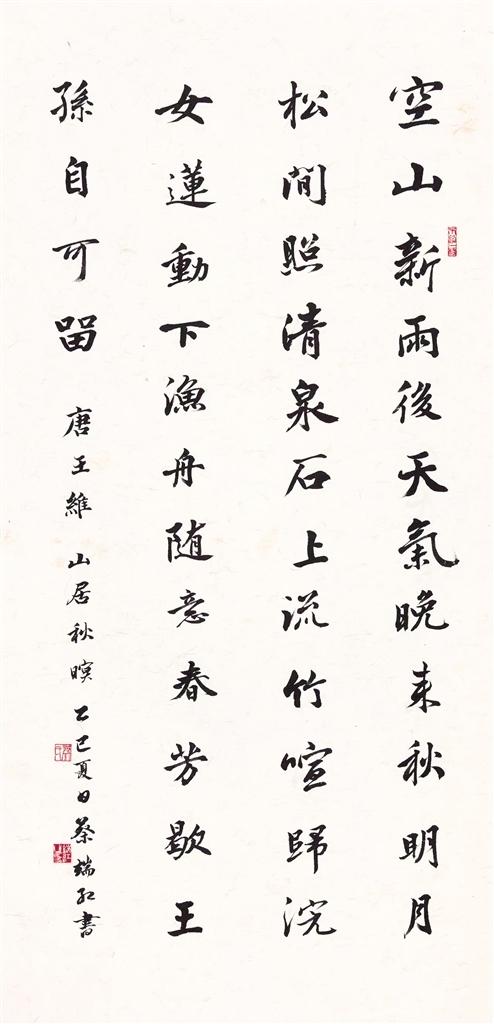 空山新雨後天氣晚来秋明月
松間照清泉石上流竹喧歸浣
女蓮動下漁舟随意春芳歇王
孫自可留
唐王維 山居秋暝 乙巳夏日蔡端红書